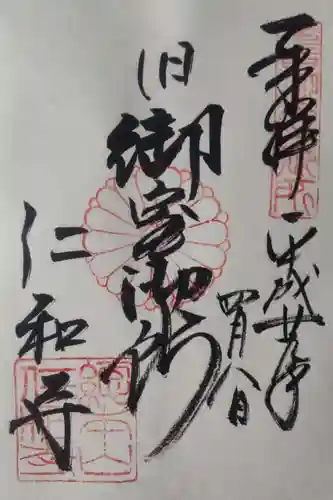 奉拝
平成廿年
四月八日
旧
御室御所
仁和寺